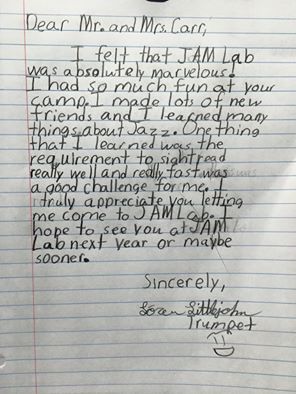 Dear Mr. and Mrs. Carr,
I felt that JAM Lab
was absolutely marvelous.
I had so much fun at your
camp. I made lots of new
friends and I learned many
things about Jazz. One thing
that I learned was the
requirement to sightread
really well and really fast was
a good challenge for me. I
truly appreciate you letting
me come to JAM Lab. I
hope to see you at JAM
Lab next year or maybe
sooner.
Sincerely,
Littlejohn
Trumpet